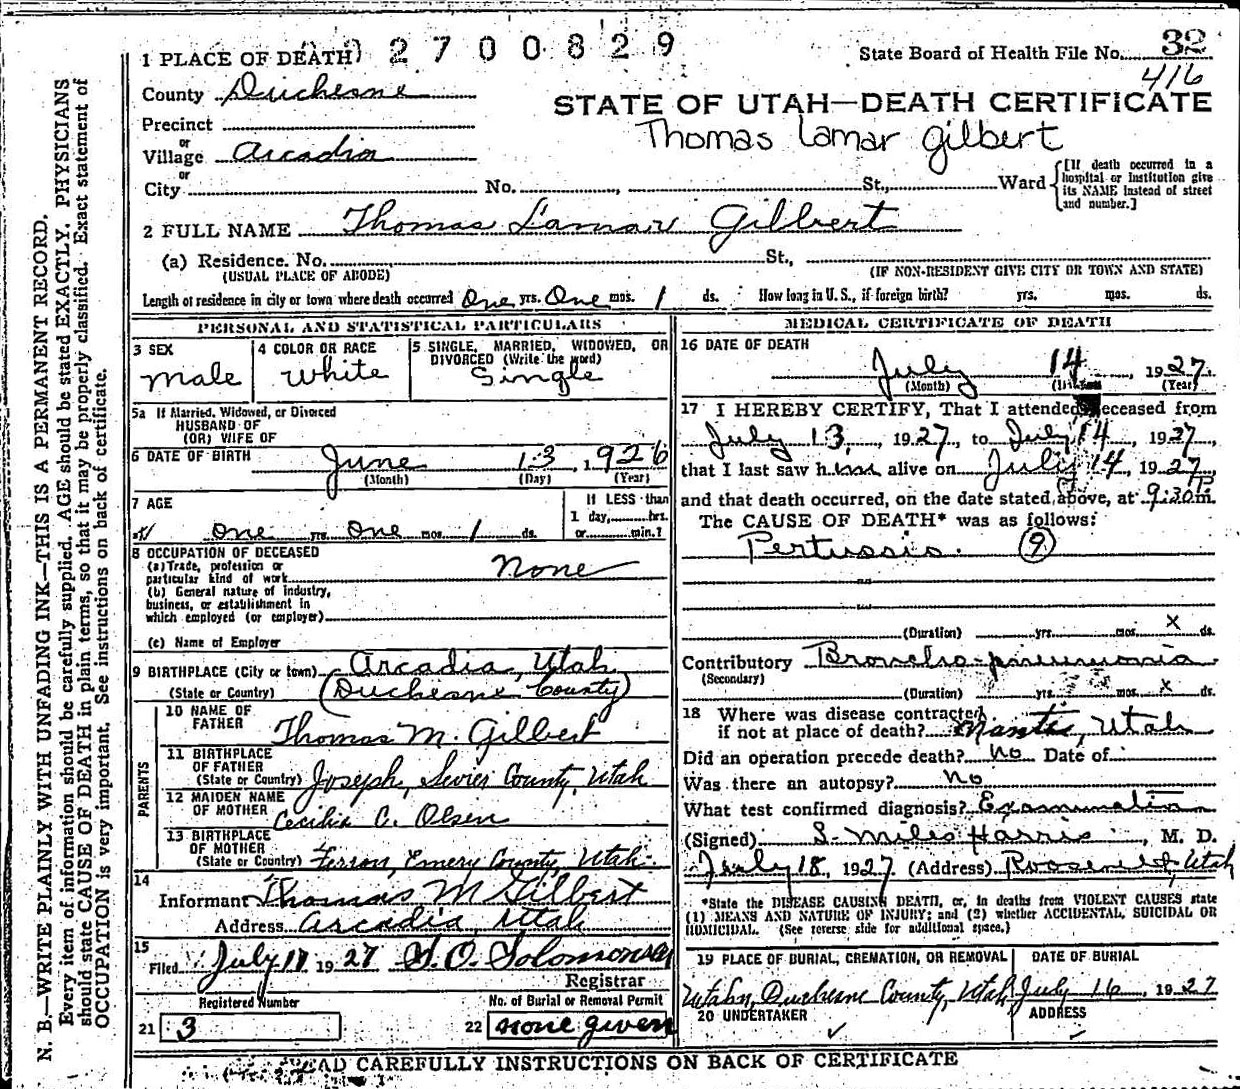 2700829
State Board of Health File No. 32
416
1 PLACE OF DEATH
County Duchesne
STATE OF UTAH—DEATH CERTIFICATE
Precinct
Thomas Lamar Gilbert
or
Village Arcadia
or
City No. , St., Ward
[If death occurred in a
hospital or institution give
its NAME instead of street
and number.]
2 FULL NAME Thomas Lamar Gilbert
(a) Residence. No. St.,
(USUAL PLACE OF ABODE) (IF NON-RESIDENT GIVE CITY OR TOWN AND STATE)
Length of residence in city or town where death occurred One yrs. One mos. 1 ds. How long in U. S., if foreign birth? yrs. mos. ds.
PERSONAL AND STATISTICAL PARTICULARS
3 SEX
Male
4 COLOR OR RACE
White
5 SINGLE, MARRIED, WIDOWED, OR
DIVORCED (Write the word)
Single
5a If Married, Widowed, or Divorced
HUSBAND OF
(OR) WIFE OF
6 DATE OF BIRTH June 13, 1926
(Month) (Day) (Year)
7 AGE
one yrs. one mos. 1 ds.
If LESS than
1 day, hrs.
or min.?
8 OCCUPATION OF DECEASED
(a) Trade, profession or
particular kind of work None
(b) General nature of industry,
business, or establishment in
which employed (or employer)
(c) Name of Employer
9 BIRTHPLACE (City or town) Arcadia, Utah
(State or Country) (Duchesne County)
PARENTS
10 NAME OF
FATHER Thomas M. Gilbert
11 BIRTHPLACE
OF FATHER
(State or Country) Joseph, Sevier County, Utah
12 MAIDEN NAME
OF MOTHER Cecilia C. Olsen
13 BIRTHPLACE
OF MOTHER
(State or Country) Ferron, Emery County, Utah
14
Informant Thomas M Gilbert
Address Arcadia Utah
15
Filed July 18 1927 Solomonsen
Registrar
Registered Number
21 3
No. of Burial or Removal Permit
22 none given
MEDICAL CERTIFICATE OF DEATH
16 DATE OF DEATH
July 14, 1927
(Month) (Year)
17 I HEREBY CERTIFY, That I attended deceased from
July 13, 1927, to July 14, 1927,
that I last saw him alive on July 14, 1927,
and that death occurred, on the date stated above, at 9:30 P m.
The CAUSE OF DEATH* was as follows:
Pertussis. 9
(Duration) yrs. mos. x ds.
Contributory Broncho-pneumonia
(Secondary)
(Duration) yrs. mos. x ds.
18 Where was disease contracted
if not at place of death? Manti, Utah
Did an operation precede death? No Date of
Was there an autopsy? No
What test confirmed diagnosis? Examination
(Signed) S. Miles Harris, M. D.
July 18, 1927 (Address) Roosevelt, Utah
*State the DISEASE CAUSING DEATH, or, in deaths from VIOLENT CAUSES state
(1) MEANS AND NATURE OF INJURY; and (2) whether ACCIDENTAL, SUICIDAL OR
HOMICIDAL. (See reverse side for additional space.)
19 PLACE OF BURIAL, CREMATION, OR REMOVAL
Utahn, Duchesne County, Utah
DATE OF BURIAL
July 16, 1927
20 UNDERTAKER
ADDRESS
READ CAREFULLY INSTRUCTIONS ON BACK OF CERTIFICATE
N. B.—WRITE PLAINLY WITH UNFADING INK—THIS IS A PERMANENT RECORD.
Every item of information should be carefully supplied. AGE should be stated EXACTLY. PHYSICIANS
should state CAUSE OF DEATH in plain terms, so that it may be properly classified. Exact statement of
OCCUPATION is very important. See instructions on back of certificate.